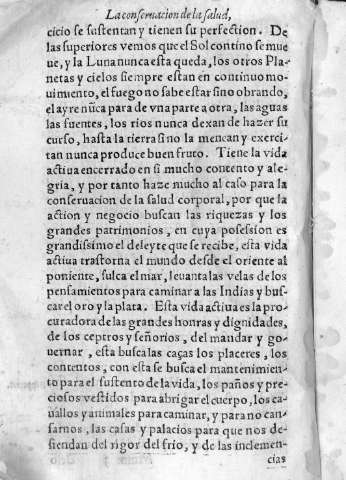 La conseruacion de la salud,
cicio se sustentan y tienen su perfection. De
las superiores vemos que el Sol contino se mue
ue, y la Luna nunca esta queda, los otros Pla-
netas y cielos siempre estan en continuo mo-
uimiento, el fuego no sabe estar sino obrando,
el ayre nũca para de vna parte a otra, las aguas
las fuentes, los rios nunca dexan de hazer su
curso, hasta la tierra sino la menean y exerci-
tan nunca produce buen fruto. Tiene la vida
actiua encerrado en si mucho contento y ale-
gria, y por tanto haze mucho al caso para la
conseruacion de la salud corporal, por que la
action y negocio buscan las riquezas y los
grandes patrimonios, en cuya possesion es
grandissimo el deleyte que se recibe, esta vida
actiua trastorna el mundo desde el oriente al
poniente, sulca el mar, leuanta las velas de los
pensamientos para caminar a las Indias y bus-
car el oro y la plata. Esta vida actiua es la pro-
curadora de las grandes honras y dignidades,
de los ceptros y señorios, del mandar y go-
uernar, esta busca las caças los placeres, los
contentos, con esta se busca el mantenimien-
to para el sustento de la vida, los paños y pre-
ciosos vestidos para abrigar el cuerpo, los ca-
uallos y animales para caminar, y para no can-
sarnos, las casas y palacios para que nos de-
fiendan del rigor del frio, y de las inclemen-
cias